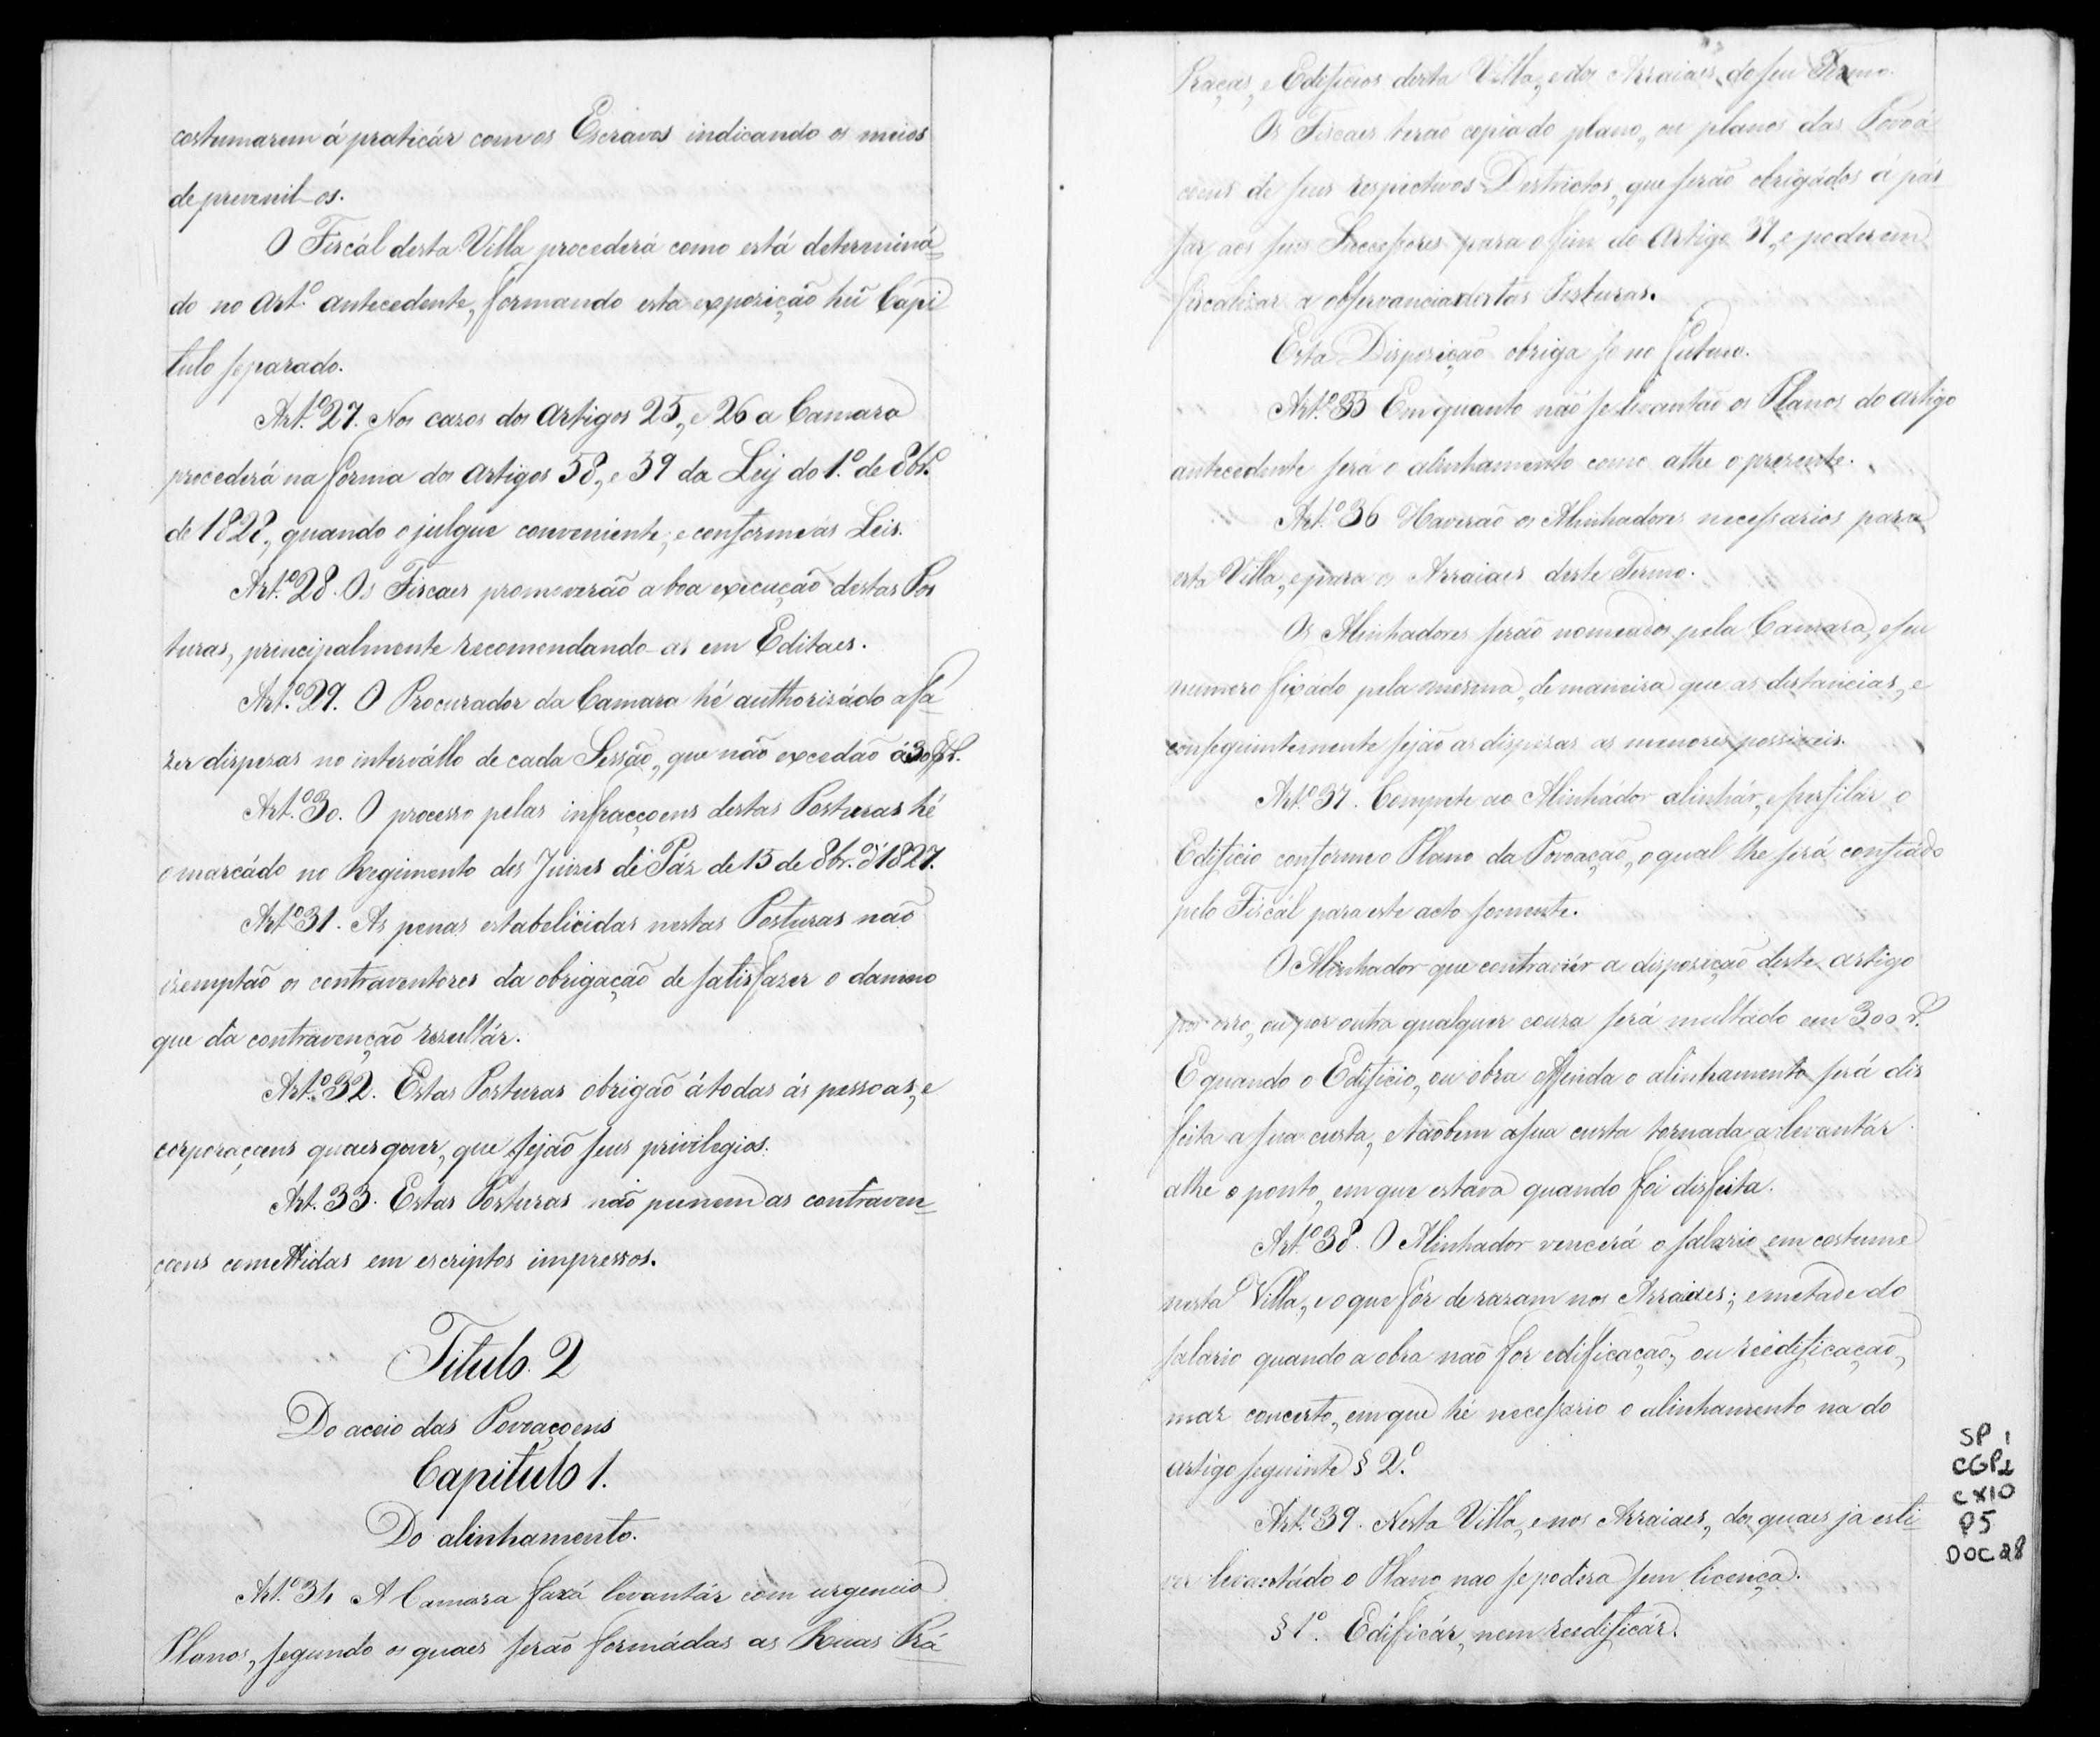 costumarem á praticár com os Escravos indicando os meios
de prevenil-os.
O Fiscál desta Villa procederá como está determiná-
do no Art.º antecedente, formando esta expozição hũ Capi
tulo separado.
Art.º 27. Nos cazos dos Artigos 25, e 26 a Camara
procederá na forma dos Artigos 58, e 59 da Ley do 1.º de 8br.º
de 1828, quando o julgue conveniente, e conforme ás Leis.
Art.º 28. Os Fiscaes promoverão a boa execução destas Pos
turas, principalmente recomendando-as em Editaes.
Art.º 29. O Procurador da Camara hé authorisádo a fa-
zer dispezas no intervállo de cada Sessão, que não excedão á
Art.º 30. O processo pelas infracçoens destas Posturas hé
o marcádo no Regimento des Juizes de Páz de 15 de 8br.º d' 1827.
Art.º 31. As penas estabelicidas nestas Posturas não
izemptão os contraventores da obrigação de satisfazer o damno
que da contravenção rezultár.
Art.º 32. Estas Posturas obrigão á todas ás pessoas, e
corporaçoens quaesquer, que sejão seus privilegios.
Art. 33. Estas Posturas não punem as contraven-
çoens comettidas em escriptos impressos.
Titulo. 2
Do aceio das Povoaçoens
Capitulo 1.
Do alinhamento.
Art.º 34 A Camara fará levantár com urgencia
Planos, segundo os quaes serão formádas as Ruas Prá-
Praças, e Edificios desta Villa, e dos Arraiaes do seu Termo.
Os Fiscaes terão copia do plano, ou planos das Povoa-
coens de seus respectivos Destrictos, que serão obrigádos á pás-
sar aos seus Successores para o fim do Artigo 37, e poderem
fiscalizar a observancia destas Posturas.
Esta Dispozição obriga so no futuro.
Art.º 35 Em quanto não se levantão os Planos do artigo
antecedente será o alinhamento como athe o prezente.
Art.º 36 Haverão os Alinhadores necessarios para
esta Villa, e para os Arraiaes deste Termo.
Os Alinhadores serão nomeados pela Camara, e seu
numero fixádo pela mesma, de maneira que as distancias, e
conseguintemente sejão as dispezas as menores possiveis.
Art.º 37. Compete ao Alinhádor alinhár, e perfilár o
Edificio conforme o Plano da Povoação, o qual lhe será confiado
pelo Fiscál para este acto somente.
O Alinhador que contraviér a dispozição deste artigo
por erro, ou por outra qualquer couza será multado em 300 r.ˢ
E quando o Edificio, ou obra offenda o alinhamento será dis
feita a sua custa, e tãobem a sua custa tornada a levantár
athe o ponto, em que estava quando foi disfeita.
Art.º 38. O Alinhador vencerá o salario em costume
nesta Villa, e o que fôr de razam nos Arraiaes; e metade do
salario quando a obra não for edificação, ou reedificação,
mas concerto, em que hé necessario o alinhamento na do
artigo seguinte § 2.º
Art.º 39. Nesta Villa, e nos Arraiaes, dos quaes ja esti-
ver levantádo o Plano nao se podera sem licença.
§ 1º. Edificár, nem reedificár.
SP 1
CGP1
CX10
P5
DOC28